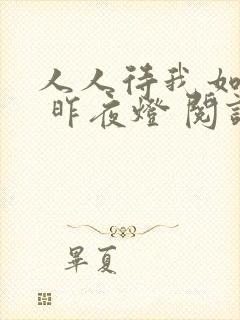 人人待我如
昨夜燈 閱
畢夏